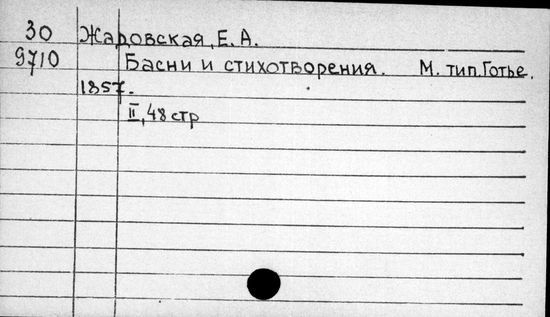 30 Жаровская, Е. А.
9710 Басни и стихотворения. М. тип. Готье.
1857.
II, 48 стр